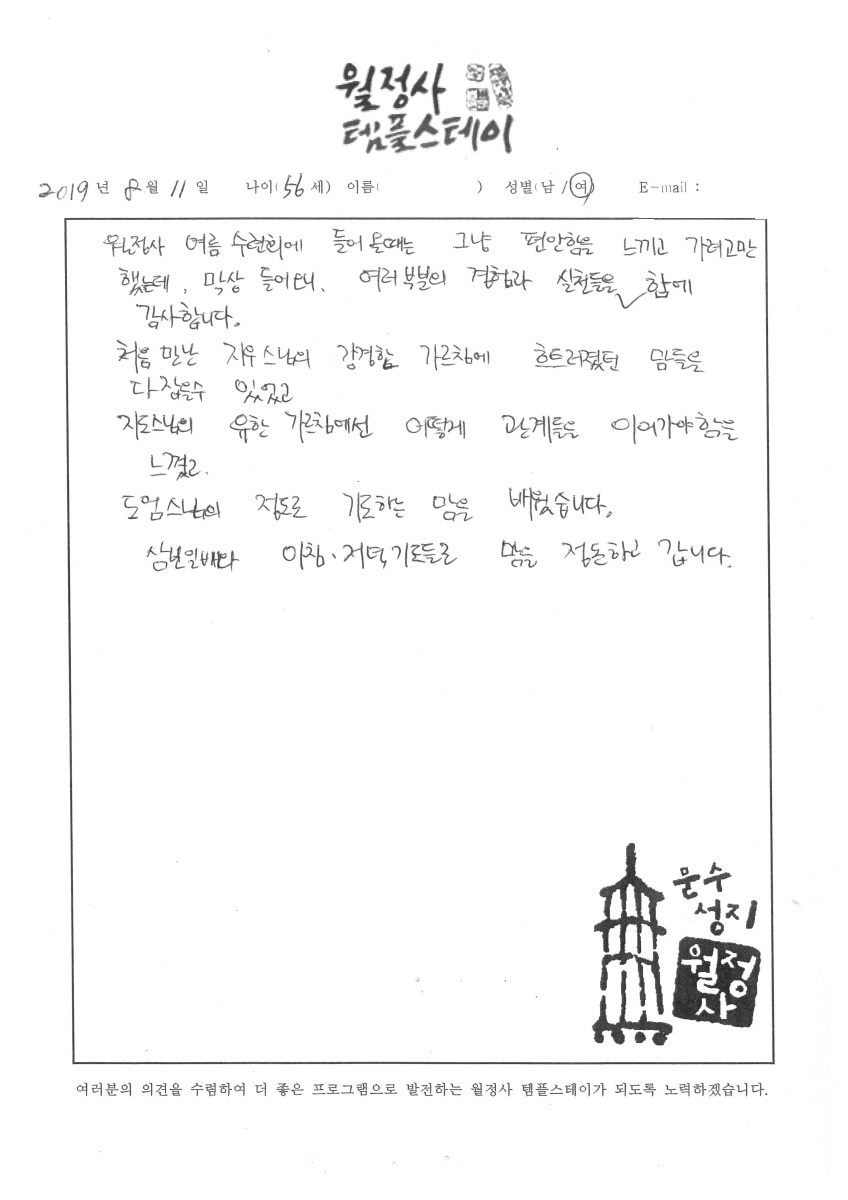 월정사
템플스테이
2019년 8월 11일 나이(56세) 이름( ) 성별(남/여) E-mail :
월정사 여름 수련회에 들어올때는 그냥 편안함을 느끼고 가려고만
했는데, 막상 들어오니, 여러 부분의 경험과 실천들을 함에
감사합니다.
처음 만난 지우스님의 강경함 가르침에 흐트러졌던 맘들을
다 잡을수 있었고
지도스님의 유한 가르침에선 어떻게 관계들을 이어가야 함을
느꼈고.
도엄스님의 정도로 기도하는 맘을 배웠습니다.
삼보일배와 아침·저녁기도들로 맘을 정돈하고 갑니다.
문수
성지
월정
사
여러분의 의견을 수렴하여 더 좋은 프로그램으로 발전하는 월정사 템플스테이가 되도록 노력하겠습니다.